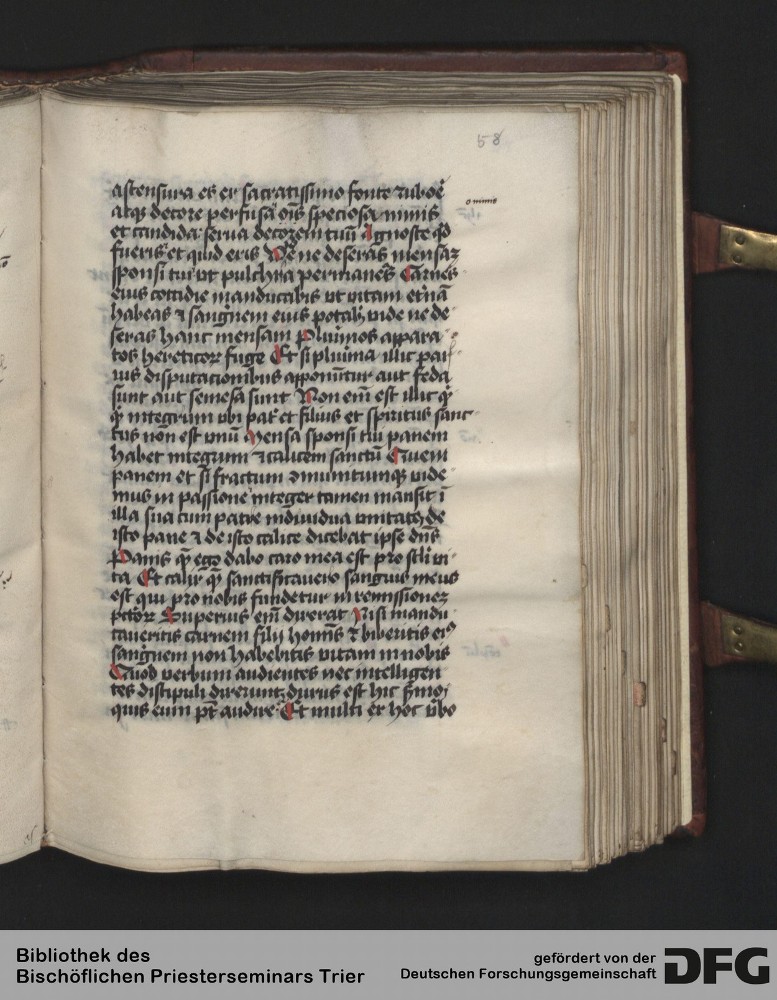 58
astensura es et sacratissimo fonte ruboẽ
atqꝫ decore perfusa oĩs speciosa nimis
o nimis
et candida serua decorem tuũ Agnosce qd
fueris et quid eris Ne ne deseras mensaꝫ
sponsi tui ut pulchra permanes Carnes
eius cottidie manducabis ut vitam et'nã
habeas ⁊ sanguĩem eius potab' vide ne de
seras hanc mensam Plurimos appara
tos hereticoꝝ fuge Et si plurima illic pan
uis disputacionibus apponuntur aut feda
sunt aut semesa sunt Non eni est illic q̃
q̃ integrum ubi pat' et filius et spiritus sanc
tus non est unũ Mensa sponsi tui panem
habet integrum ⁊ calicem sanctũ Quem
panem et si fractum ⁊minutumqꝫ vide
mus in passione integer tamen mansit ĩ
illa sua cum patre indiuidua unitate de
isto pane ⁊ de isto calice dicebat ipse dñs
Panis quẽ ego dabo caro mea est pro sc̃li vi
ta Et calix quẽ sanctificauero sanguis meus
est qui pro nobis fundetur in remissionem
pctoꝝ Superius eni dixerat Nisi mandu
caueritis carnem filij homĩs ⁊ biberitis eiꝰ
sanguĩem non habebitis vitam in nobis
Quod verbum audientes nec intelligen
tes discipuli dixerunt durus est hic s̃mo
quis eum pt̃ audire Et multi ex hoc ũbo
Bibliothek des
Bischöflichen Priesterseminars Trier
gefördert von der
Deutschen Forschungsgemeinschaft
DFG